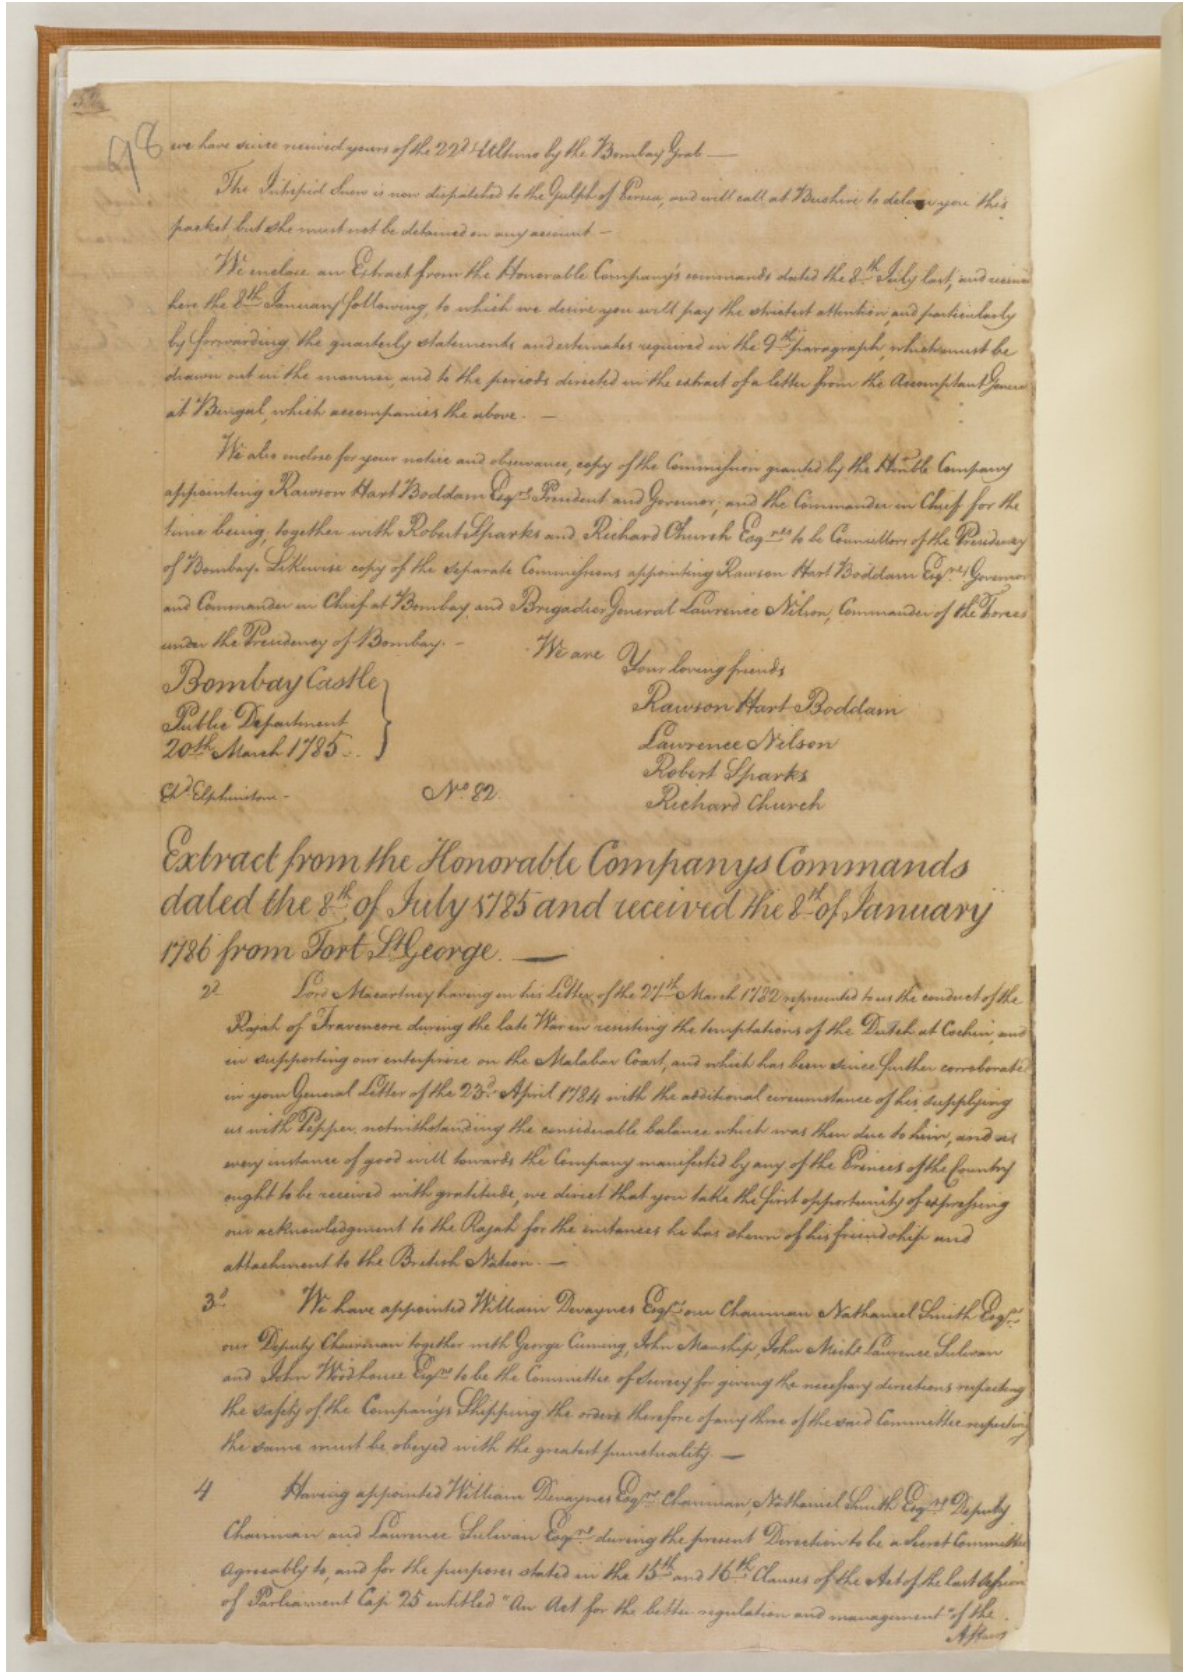 98
we have since received yours of the 22d Ultimo by the Bombay Grab —
The Intrepid Snow is now dispatched to the Gulph of Persia, and will call at Bushire to deliver you this
packet but she must not be detained on any account —
We enclose an Extract from the Honorable Company's commands dated the 8th July last, and
here the 8th January following, to which we desire you will pay the strictest attention, and particularly
by forwarding the quarterly statements and estimates required in the 9th paragraph, which must be
drawn out in the manner, and to the periods directed in the extract of a letter from the Accomptant
at Bengal, which accompanies the above. —
We also enclose for your notice and observance, copy of the Commission granted by the Honble Company
appointing Rawson Hart Boddam Esqre President and Governor, and the Commander in Chief for the
time being, together with Robert Sparks and Richard Church Esqres to be Councellors of the Presidency
of Bombay. Likewise copy of the separate Commissions appointing Rawson Hart Boddam Esqre Governor
and Commander in Chief at Bombay and Brigadier General Lawrence Nilson, Commander of the Forces
under the Presidency of Bombay. –
We are
Your loving friends
Bombay Castle
Public Department
20th March 1785
Rawson Hart Boddam
Lawrence Nilson
Robert Sparks
Richard Church
Elphinston –
No 82.
Extract from the Honorable Companys Commands
dated the 8th of July 1785 and received the 8th of January
1786 from Fort St George. —
2d Lord Macartney having in his Letter of the 27th March 1782 represented to us the conduct of the
Rajah of Travencore during the late War in resisting the temptations of the Dutch at Cochin, and
in supporting our enterprise on the Malabar Coast, and which has been since further corroborated
in your General Letter of the 23d April 1784 with the additional circumstance of his supplying
us with Pepper, notwithstanding the considerable balance which was then due to him, and as
every instance of good will towards the Company manifested by any of the Princes of the Country
ought to be received with gratitude, we direct that you take the first opportunity of expressing
our acknowledgment to the Rajah for the instances he has shewn of his friendship and
attachment to the British Nation. —
3d We have appointed William Devaynes Esqre our Chairman Nathaniel Smith Esqre
our Deputy Chairman together with George Cuming, John Manship, John Michl Laurence Sulivan
and John Woodhouse Esqrs to be the Committee of Survey for giving the necessary directions respecting
the safety of the Companys Shipping the orders therefore of any three of the said Committee respecting
the same must be obeyed with the greatest punctuality. —
4 Having appointed William Devaynes Esqre Chairman, Nathaniel Smith Esqre Deputy
Chairman and Laurence Sulivan Esqre during the present Direction to be a Secret Committee
agreeably to, and for the purposes stated in the 15th and 16th Clauses of the Act of the last Session
of Parliament Cap 25 entitled "An Act for the better regulation and management" of the
Affairs